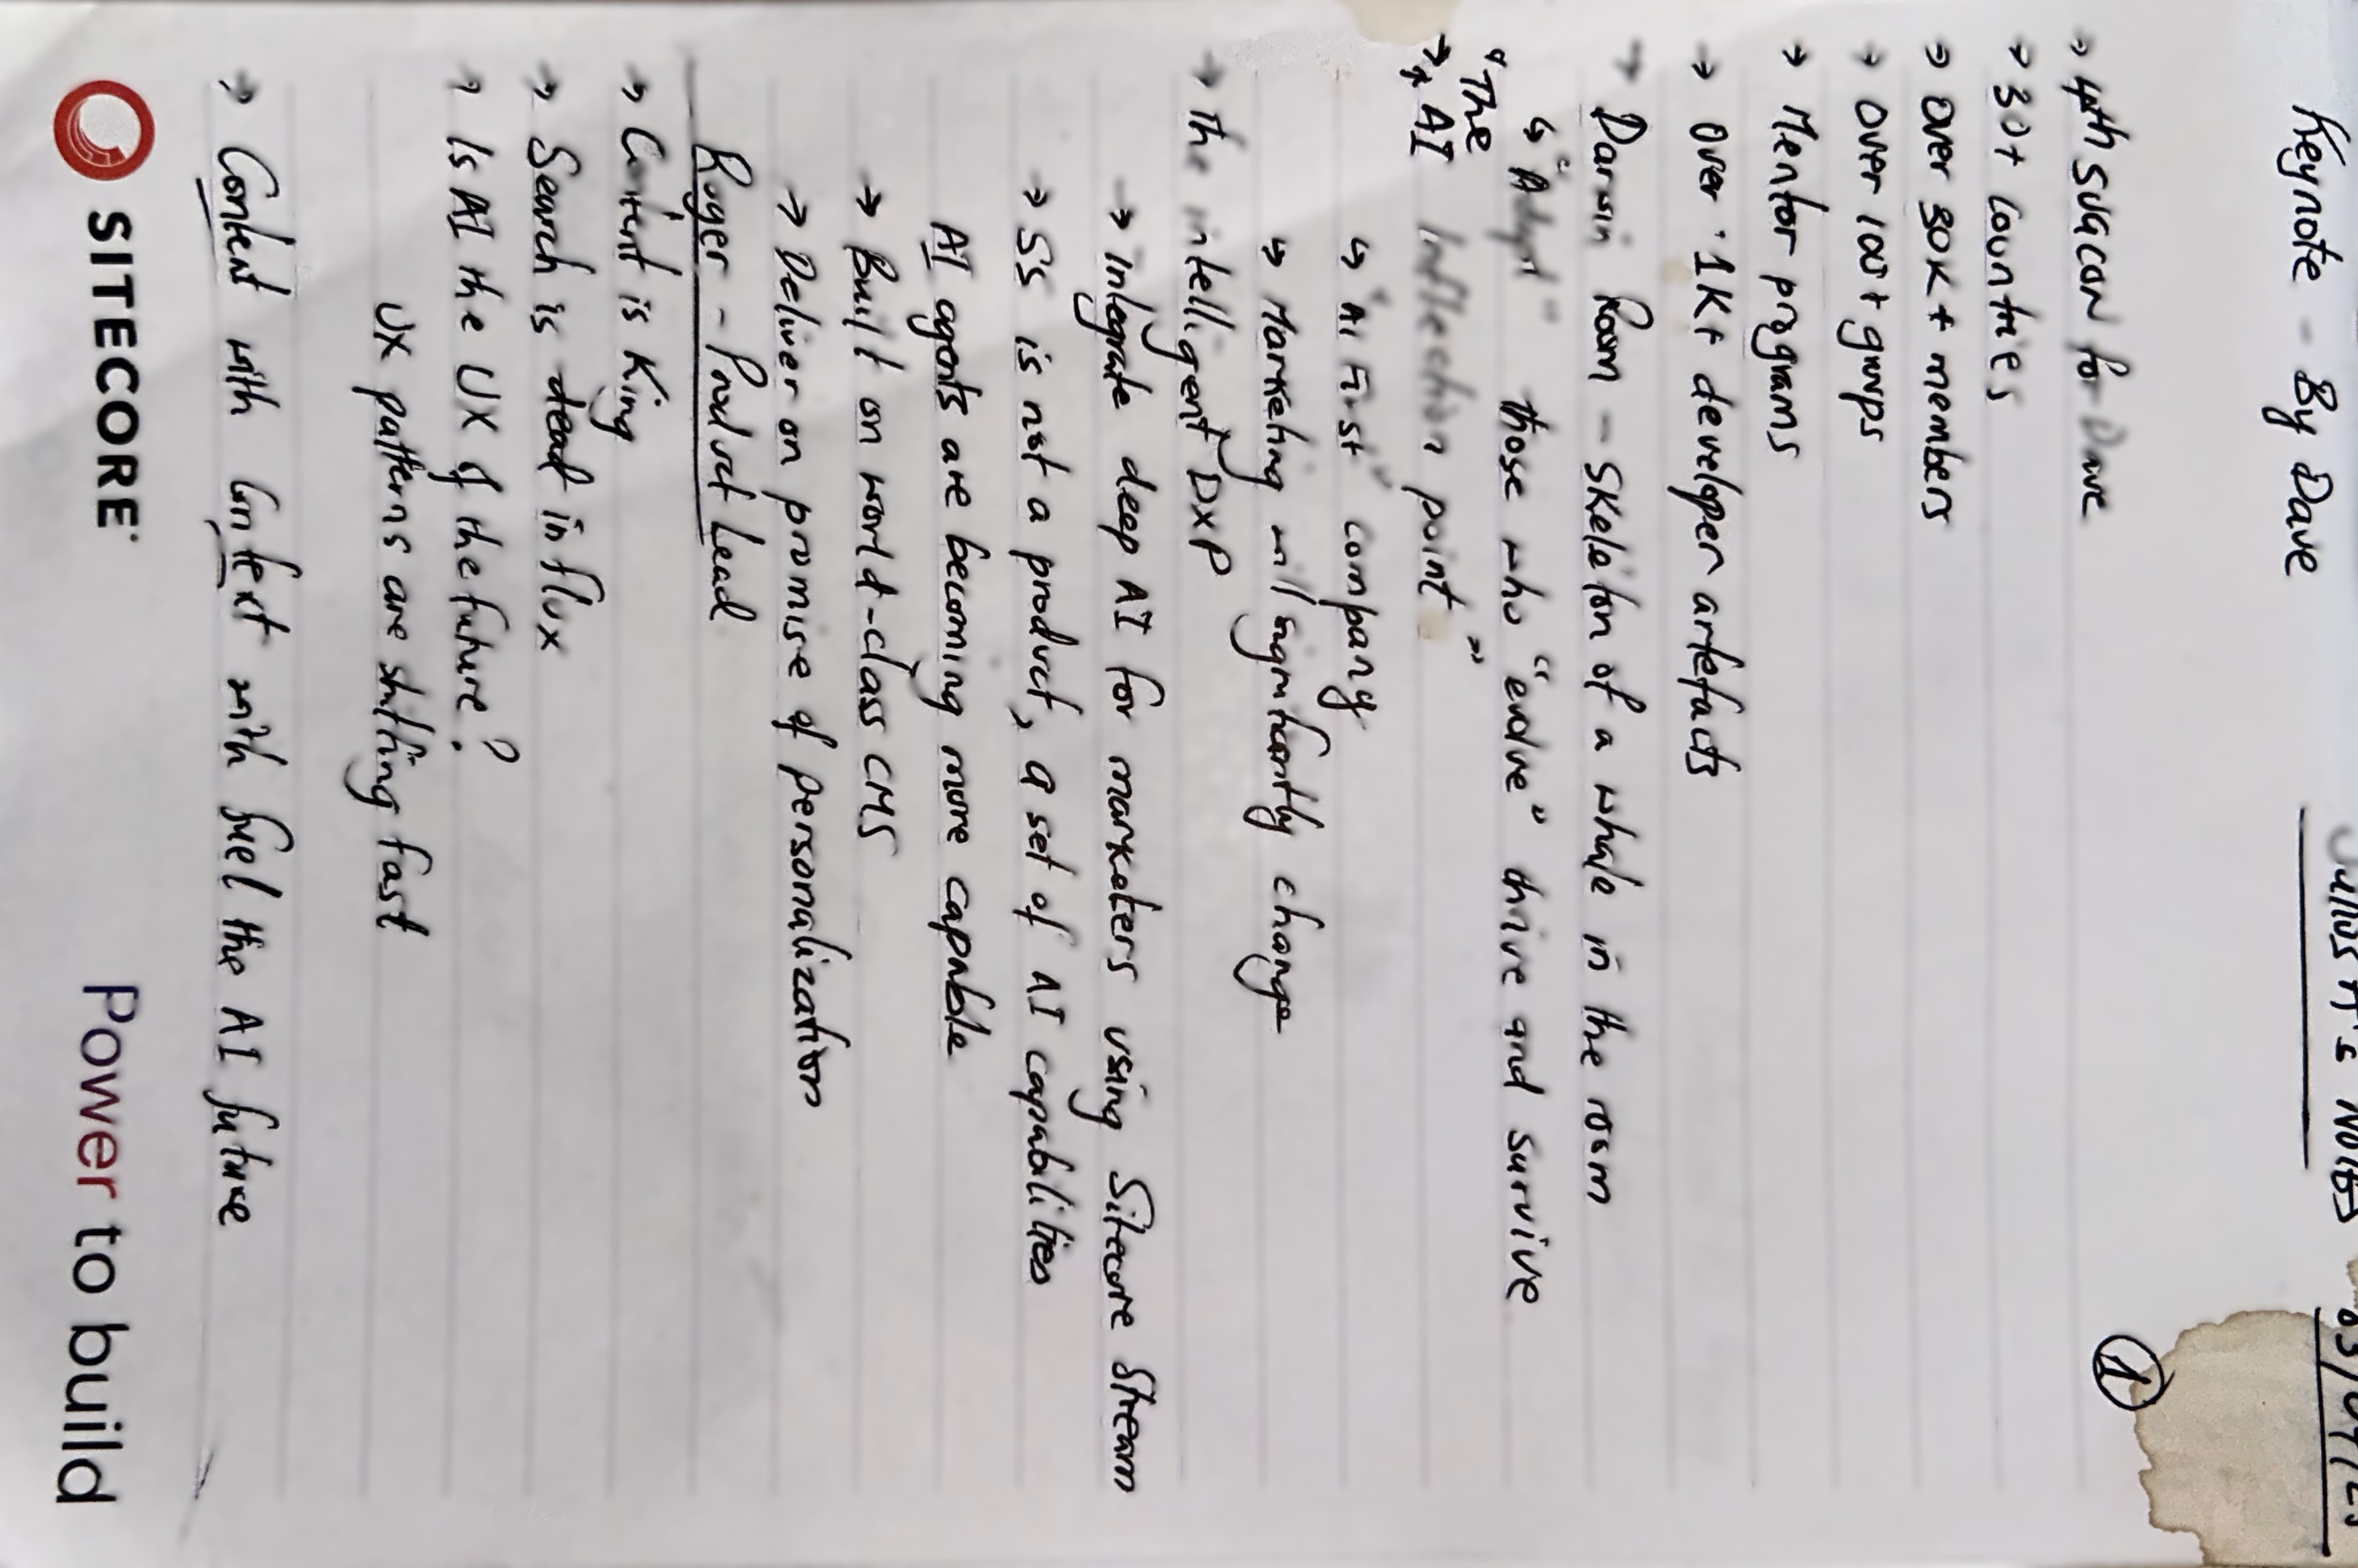 Keynote - By Dave
①
→ 4th SUGCON for Dave
→ 30+ countries
→ Over 30K+ members
→ Over 100+ groups
→ Mentor programs
→ Over 1K+ developer artefacts
→ Darwin Room - Skeleton of a whale in the room
↳ "Adapt" those who "evolve" thrive and survive
"The
→ * AI Inflection point"
↳ "AI First" company
↳ Marketing will significantly change
→ The intelligent DXP
→ integrate deep AI for marketers using Sitecore Stream
→ SS is not a product, a set of AI capabilities
AI agents are becoming more capable
→ Built on world-class CMS
→ Deliver on promise of personalization
Roger - Product Lead
→ Content is King
→ Search is dead in flux
→ Is AI the UX of the future?
UX patterns are shifting fast
→ Content with Context with fuel the AI future
SITECORE Power to build